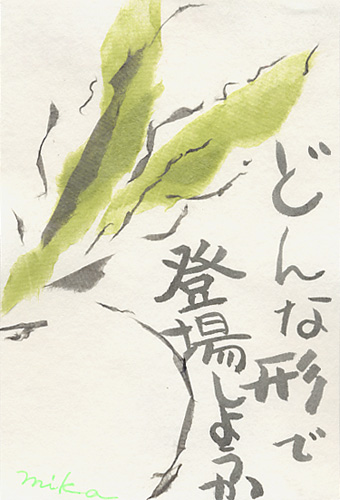 どんな形で
登場しようか
mika